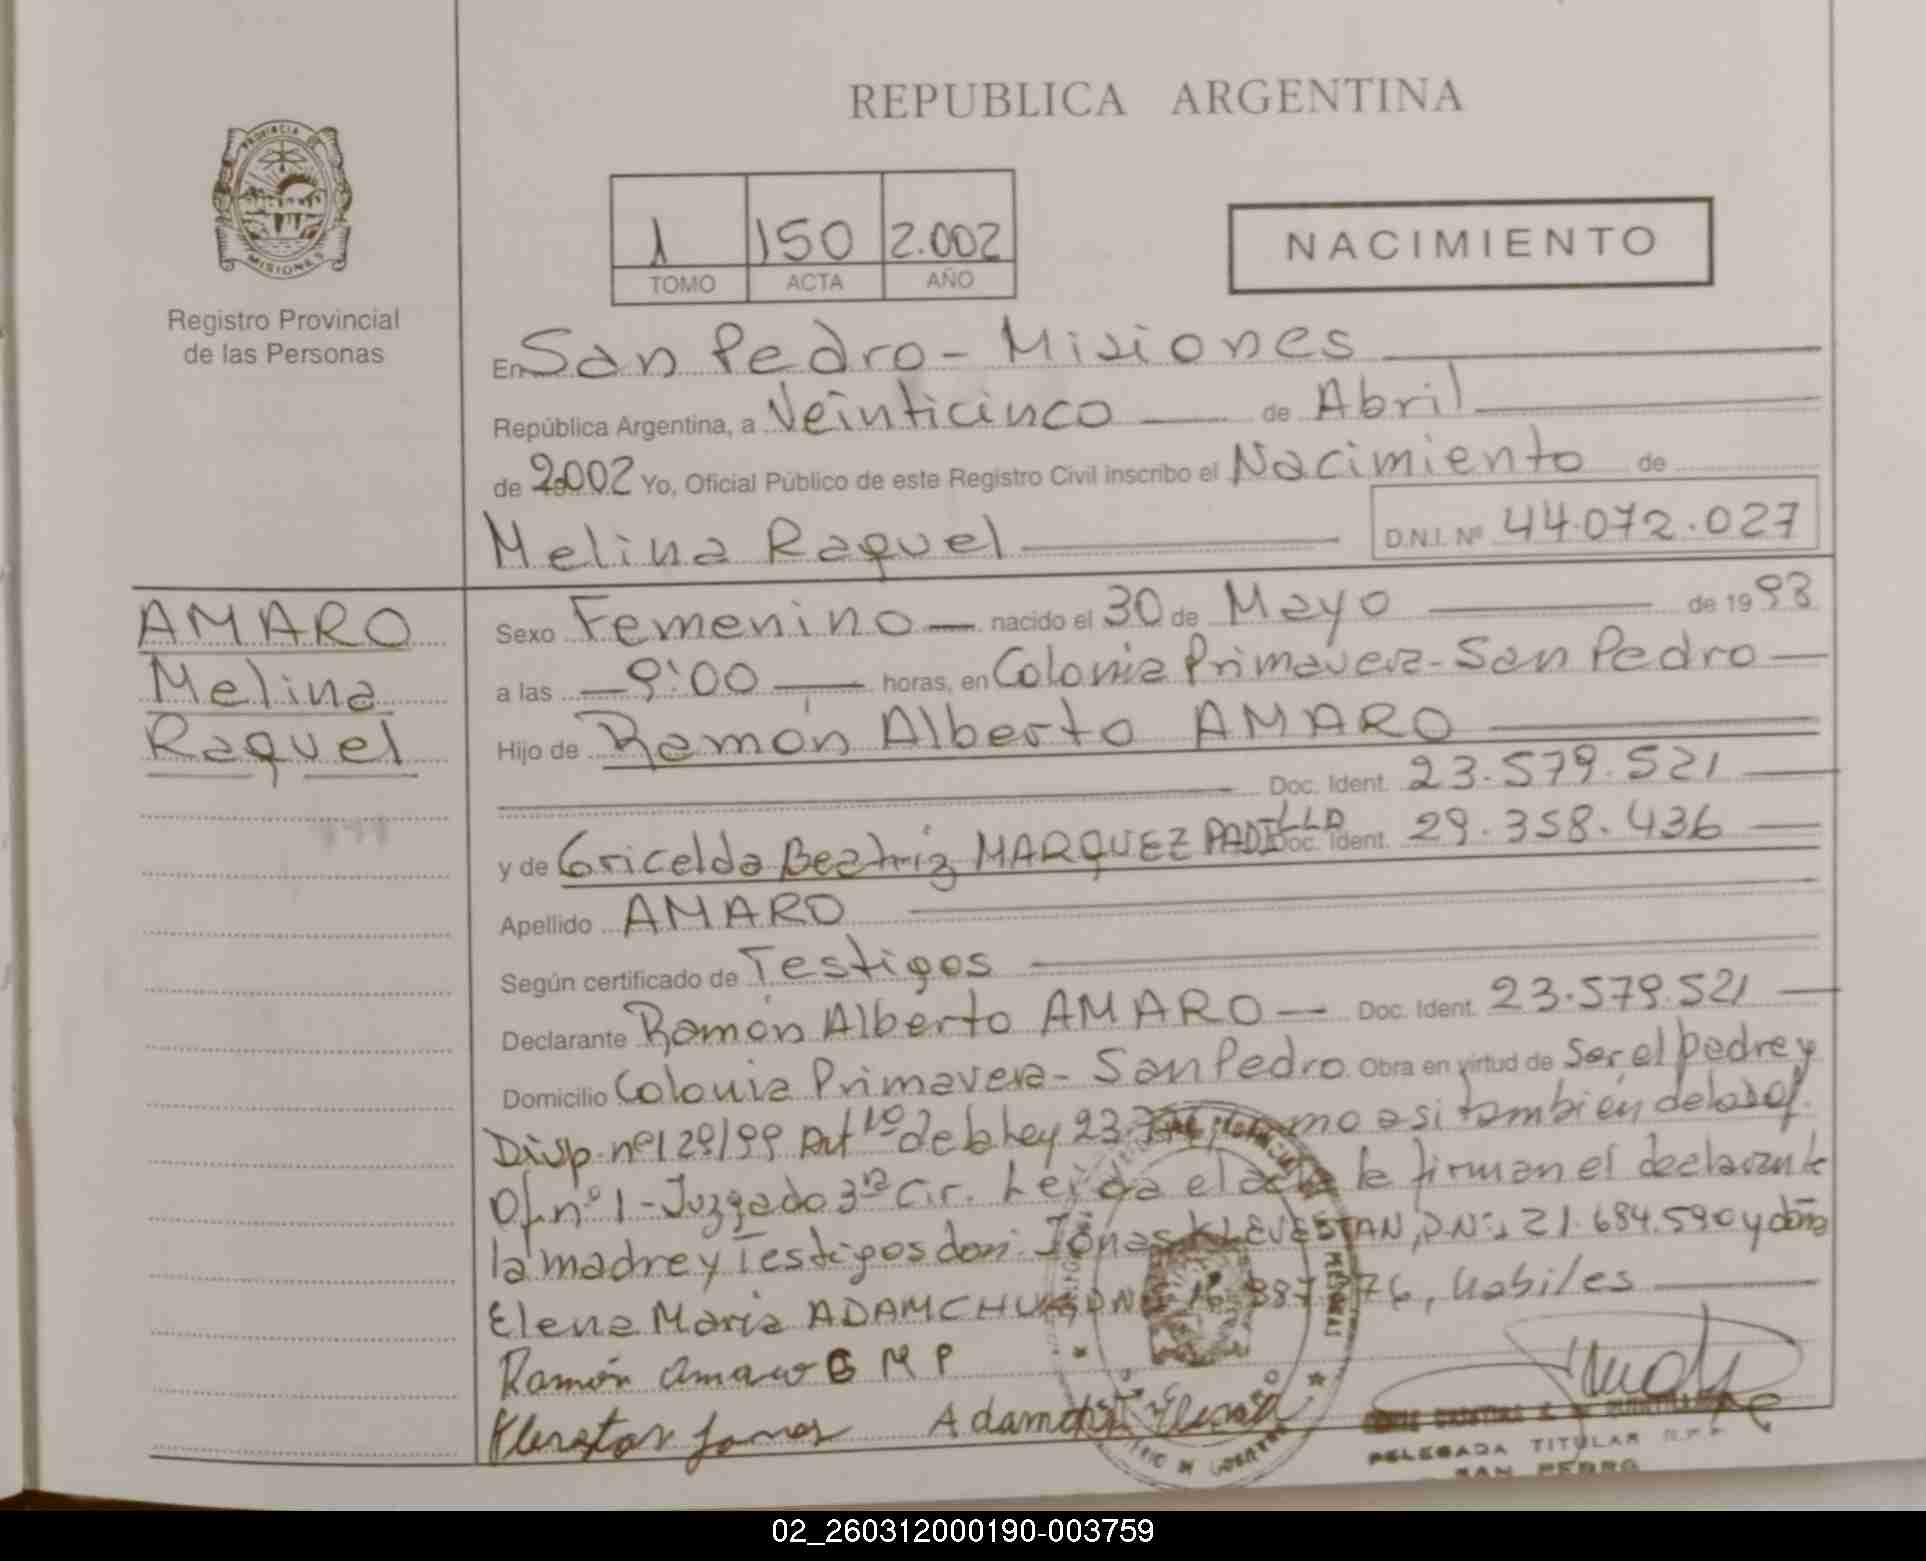 REPUBLICA ARGENTINA
PROVINCIA DE
MISIONES
Registro Provincial
de las Personas
1 150 2.002
TOMO ACTA AÑO
NACIMIENTO
En San Pedro - Misiones
República Argentina, a Veinticinco de Abril
de 2002 Yo, Oficial Público de este Registro Civil inscribo el Nacimiento de
Melina Raquel D.N.I. Nº 44.072.027
AMARO
Melina
Raquel
Sexo Femenino nacido el 30 de Mayo de 19 98
a las 9:00 horas, en Colonia Primavera - San Pedro
Hijo de Ramón Alberto AMARO
Doc. Ident. 23.579.521
y de Gricelda Beatriz MARQUEZ PADILLA Doc. Ident. 29.358.436
Apellido AMARO
Según certificado de Testigos
Declarante Ramón Alberto AMARO Doc. Ident. 23.579.521
Domicilio Colonia Primavera - San Pedro. Obra en virtud de Ser el padre y
Disp. nº 129/99 Art 1º de la Ley como asi también de la
Of. nº 1 - Juzgado 3ra Cir. Leida el acta la firman el declarante
la madre y Testigos don Jonas KLEVESTAN, 21.684.590 y doña
Elena Maria habiles
Ramón Amaro G M P
Jonas Elena
DELEGADA TITULAR R.P.P.
SAN PEDRO
02_260312000190-003759